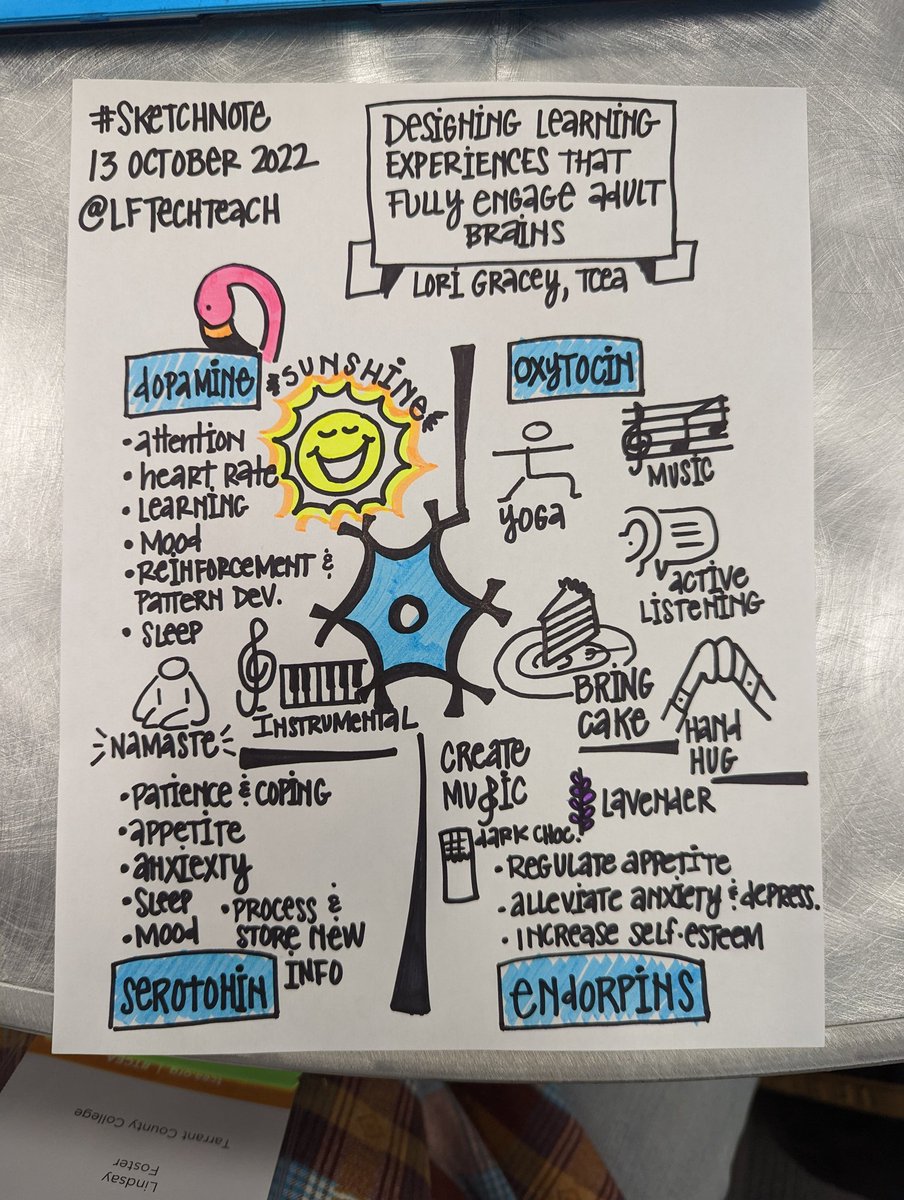 #SKETCHNOTE
13 OCTOBER 2022
@LFTECHTEACH
DESIGNING LEARNING
EXPERIENCES THAT
FULLY ENGAGE ADULT
BRAINS
LORI GRACEY, TCEA
DOPAMINE
SUNSHINE
• ATTENTION
• HEART RATE
• LEARNING
• MOOD
• REINFORCEMENT &
PATTERN DEV.
• SLEEP
NAMASTE
INSTRUMENTAL
OXYTOCIN
YOGA
MUSIC
ACTIVE
LISTENING
BRING
CAKE
HAND
HUG
• PATIENCE & COPING
• APPETITE
• ANXIEXTY
• SLEEP
• MOOD
• PROCESS &
STORE NEW
INFO
SEROTONIN
CREATE
MUSIC
LAVENDER
DARK CHOC.
• REGULATE APPETITE
• ALLEVIATE ANXIETY & DEPRESS.
• INCREASE SELF-ESTEEM
ENDORPINS
Lindsay
Foster
Tarrant County College